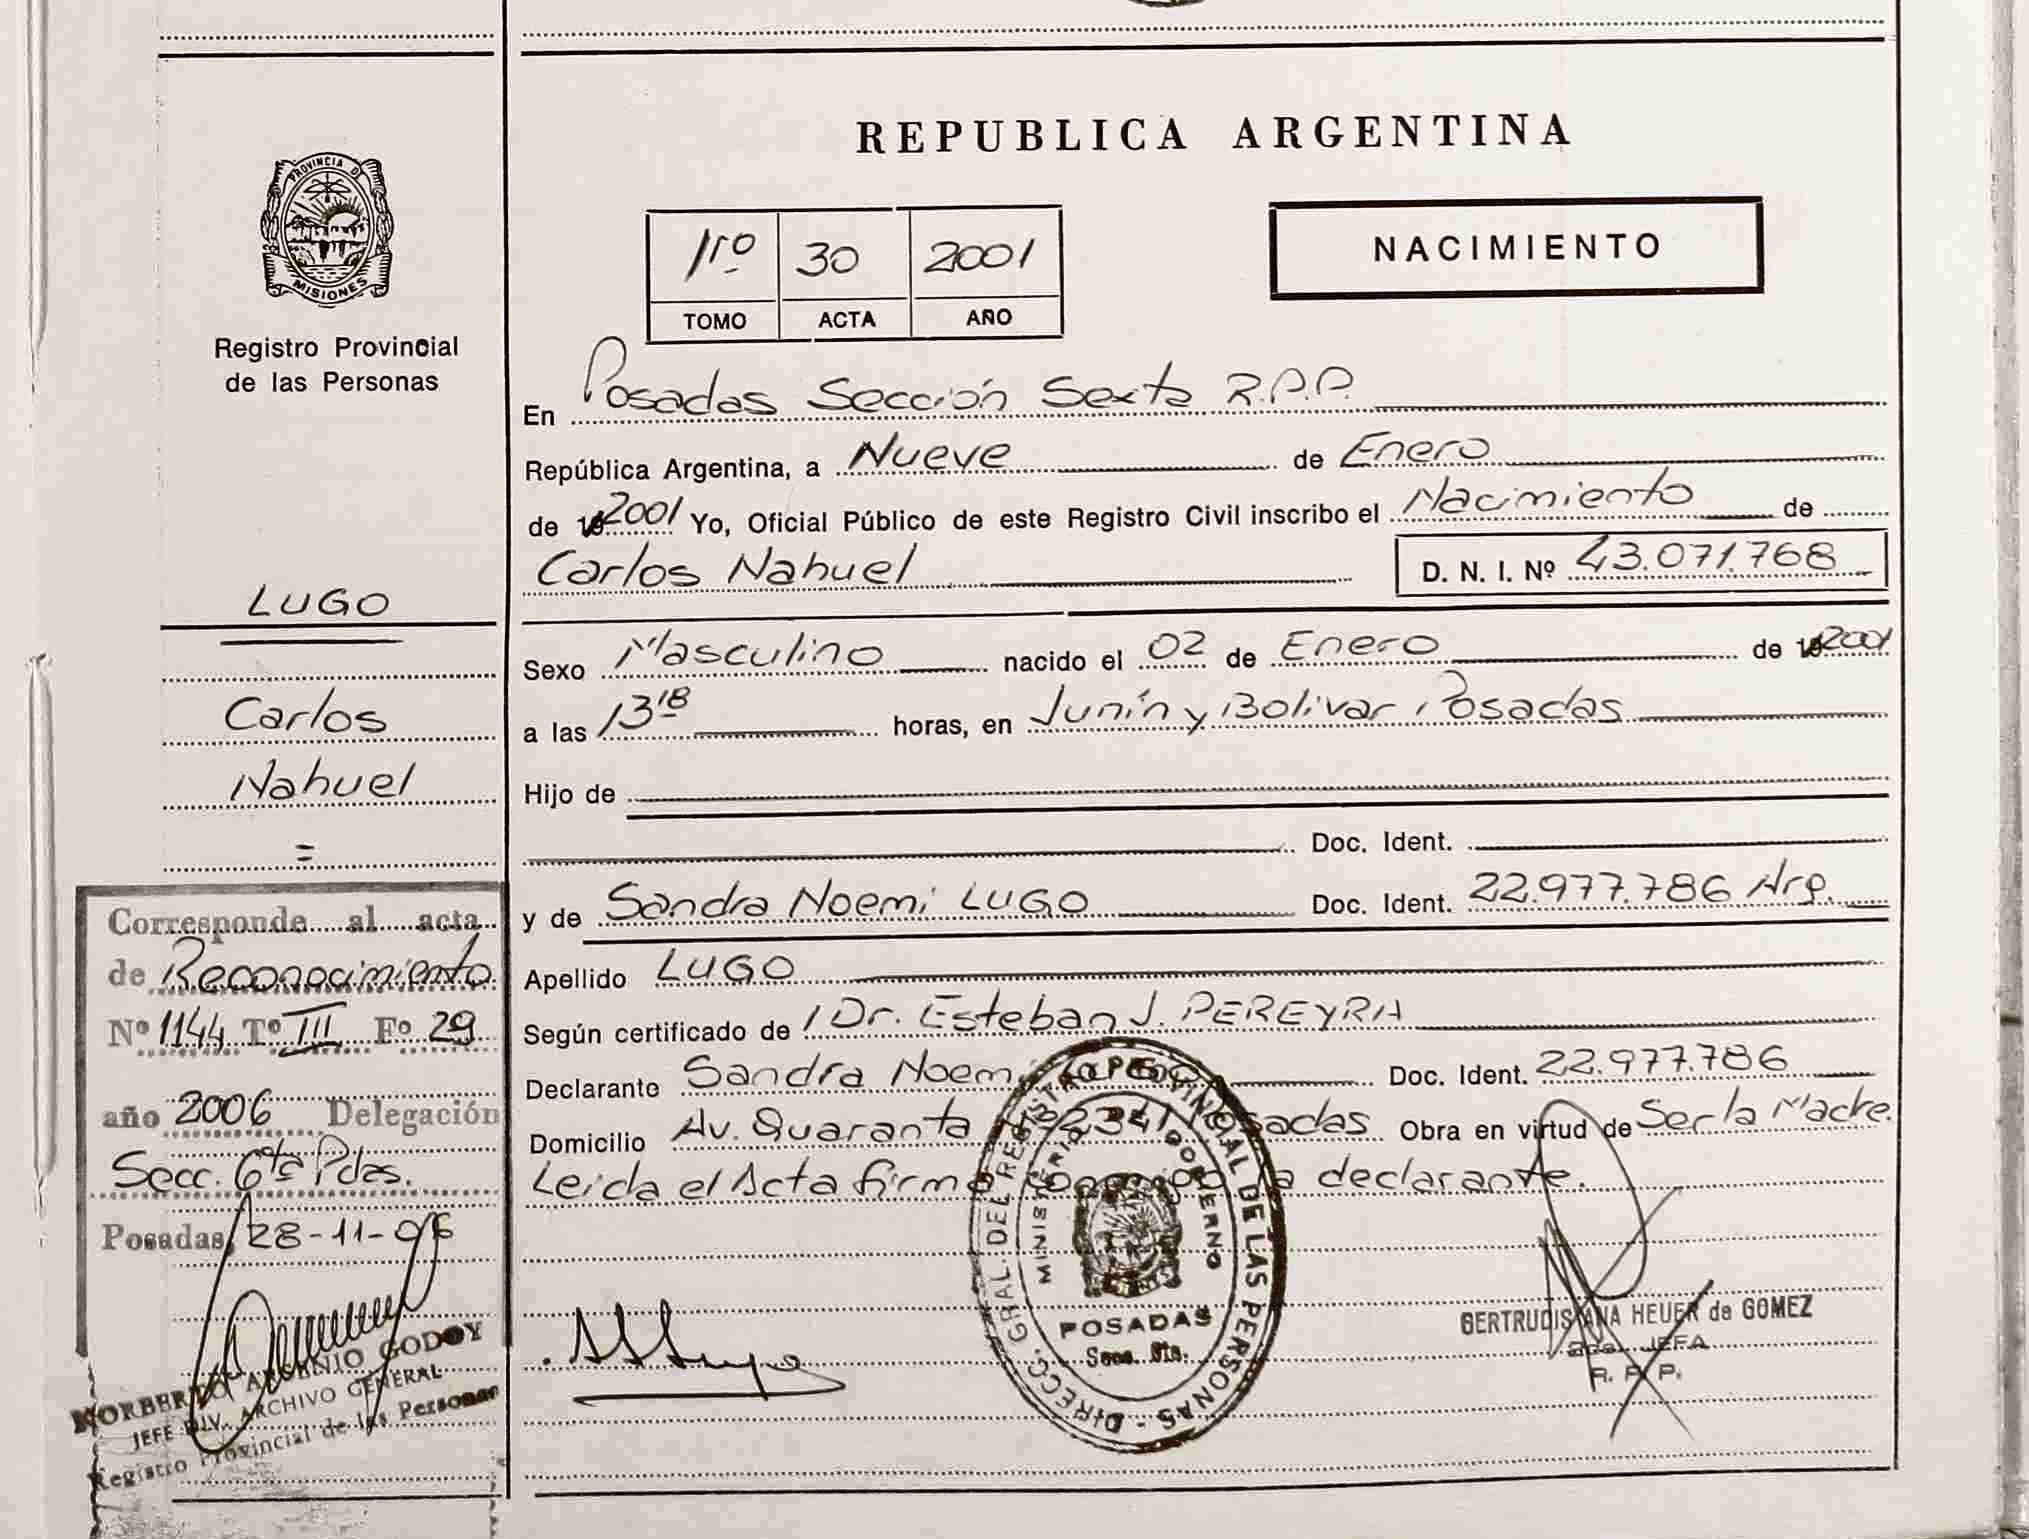 PROVINCIA D
MISIONES
Registro Provincial
de las Personas
LUGO
Carlos
Nahuel
=
Corresponde al acta
de Reconocimiento
Nº 1144 Tº III Fº 29
año 2006 Delegación
Secc. 6ta Pdas.
Posadas, 28-11-06
NORBERTO GODOY
JEFE DIV. ARCHIVO GENERAL
Registro Provincial de las Personas
REPUBLICA ARGENTINA
1ro 30 2001
TOMO ACTA AÑO
NACIMIENTO
En Posadas Sección Sexta R.P.P.
República Argentina, a Nueve de Enero
de 2001 Yo, Oficial Público de este Registro Civil inscribo el Nacimiento de
Carlos Nahuel D. N. I. Nº 43.071.768
Sexo Masculino nacido el 02 de Enero de 2001
a las 13 18 horas, en Junín y Bolivar, Posadas
Hijo de
Doc. Ident.
y de Sandra Noemi LUGO Doc. Ident. 22.977.786 Arg.
Apellido LUGO
Según certificado de Dr. Esteban J. PEREYRA
Declarante Sandra Noemi Doc. Ident. 22.977.786
Domicilio Av. Quaranta 2341 Posadas Obra en virtud de Ser la Madre.
Leida el Acta firma la declarante.
DIRECC. GRAL. DEL REGISTRO PROVINCIAL DE LAS PERSONAS
MINISTERIO GOBIERNO
POSADAS
Secc. 6ta.
GERTRUDIS ANA HEUER de GOMEZ
JEFA
R. P. P.